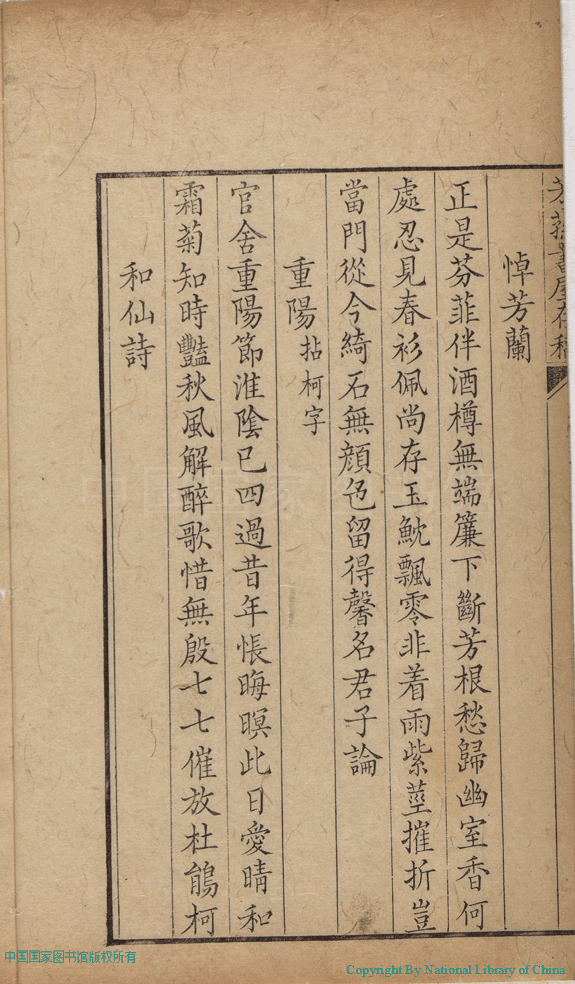 芳蓀書屋存稿
悼芳蘭
正是芬菲伴酒樽無端簾下斷芳根愁歸幽室香何
處忍見春衫佩尚存玉魫飄零非着雨紫莖摧折豈
當門從今綺石無顔色留得馨名君子論
重陽拈柯字
官舍重陽節淮陰已四過昔年悵晦暝此日愛晴和
霜菊知時豔秋風解醉歌惜無殷七七催放杜鵑柯
和仙詩
中国国家图书馆版权所有
Copyright By National Library of China